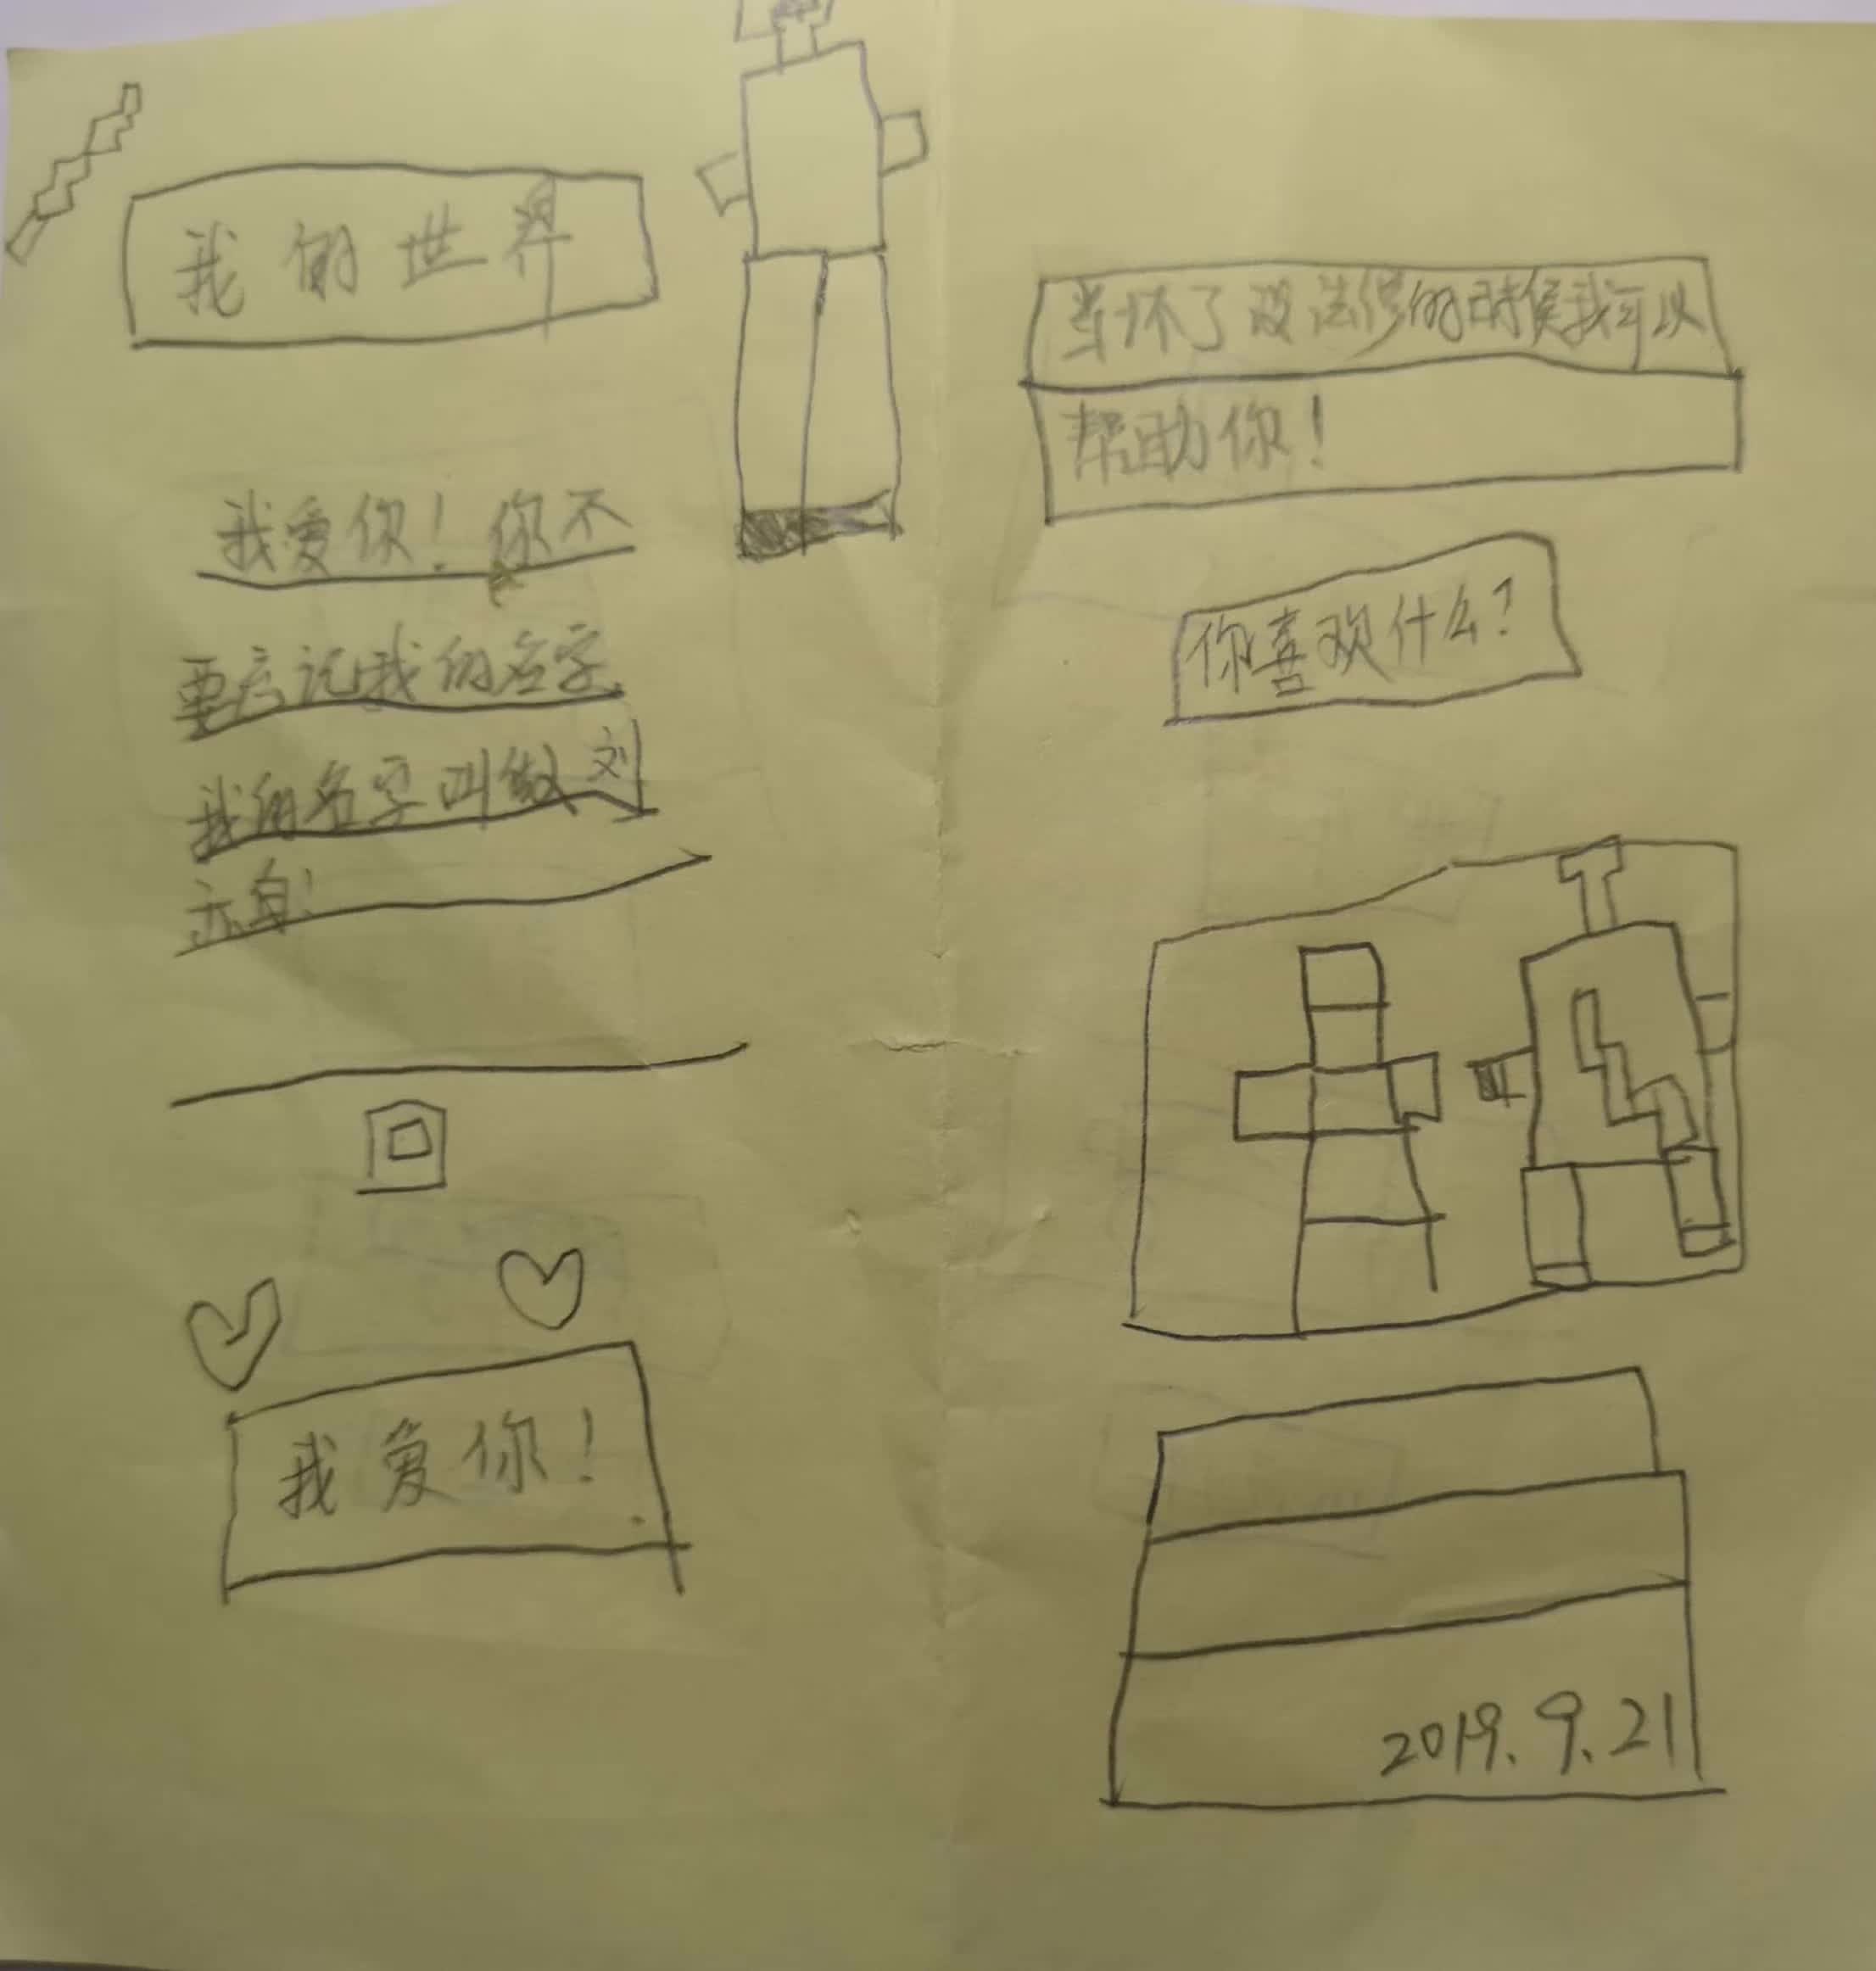 我的世界
我爱你！你不
要忘记我的名字
我的名字叫做刘
我爱你！
当坏了没法修的时候我可以
帮助你！
你喜欢什么？
2019.9.21